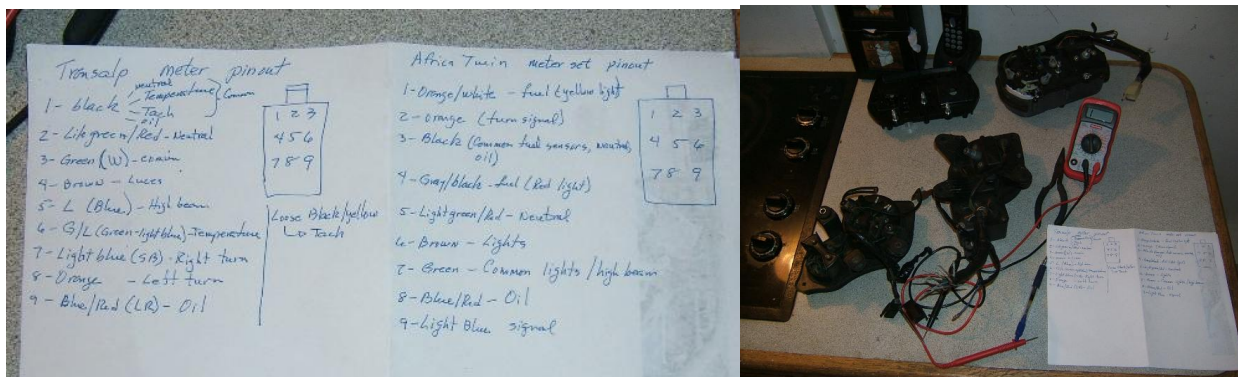 Transalp meter pinout
neutral
1- black Temperature Common
Tach
oil
2- Litegreen/Red - Neutral
3- Green (W) - común
4- Brown - Luces
5- L (Blue) - High beam
6- G/L (Green-lightblue) - Temperature
7- Light blue (SB) - Right turn
8- Orange - Left turn
9- Blue/Red (LR) - Oil
1 2 3
4 5 6
7 8 9
Loose Black/yellow
Tach
Africa Twin meter set pinout
1- Orange/white - fuel (yellow light)
2- Orange (turn signal)
3- Black (Common fuel sensors, neutral,
oil)
4- Gray/black - fuel (Red light)
5- Lightgreen/Red - Neutral
6- Brown - Lights
7- Green - Common lights/high beam
8- Blue/Red - Oil
9- Light Blue signal
1 2 3
4 5 6
7 8 9